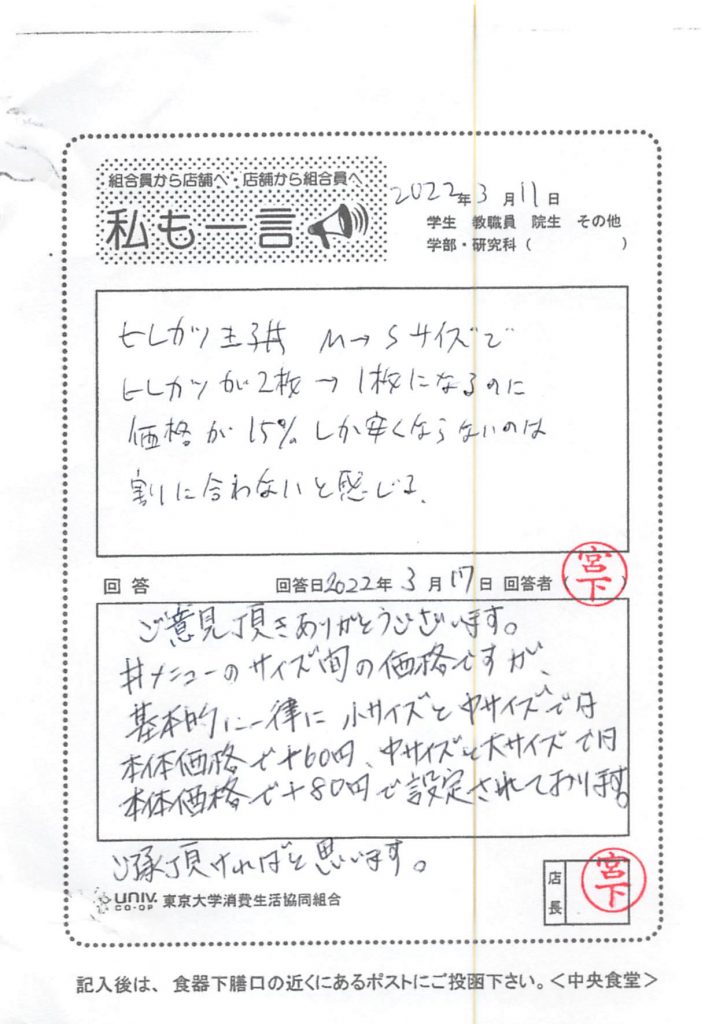 組合員から店舗へ・店舗から組合員へ
私も一言
2022年3月11日
学生 教職員 院生 その他
学部・研究科（ ）
ヒレカツ玉子丼 M→Sサイズで
ヒレカツが2枚→1枚になるのに
価格が15%しか安くならないのは
割に合わないと感じる。
回答 回答日2022年3月17日 回答者（宮下）
ご意見頂きありがとうございます。
丼メニューのサイズ間の価格ですが、
基本的に一律に小サイズと中サイズでは
本体価格で+60円、中サイズと大サイズでは
本体価格で+80円で設定されております。
ご承頂ければと思います。
店長 宮下
UNIV. CO-OP 東京大学消費生活協同組合
記入後は、食器下膳口の近くにあるポストにご投函下さい。＜中央食堂＞